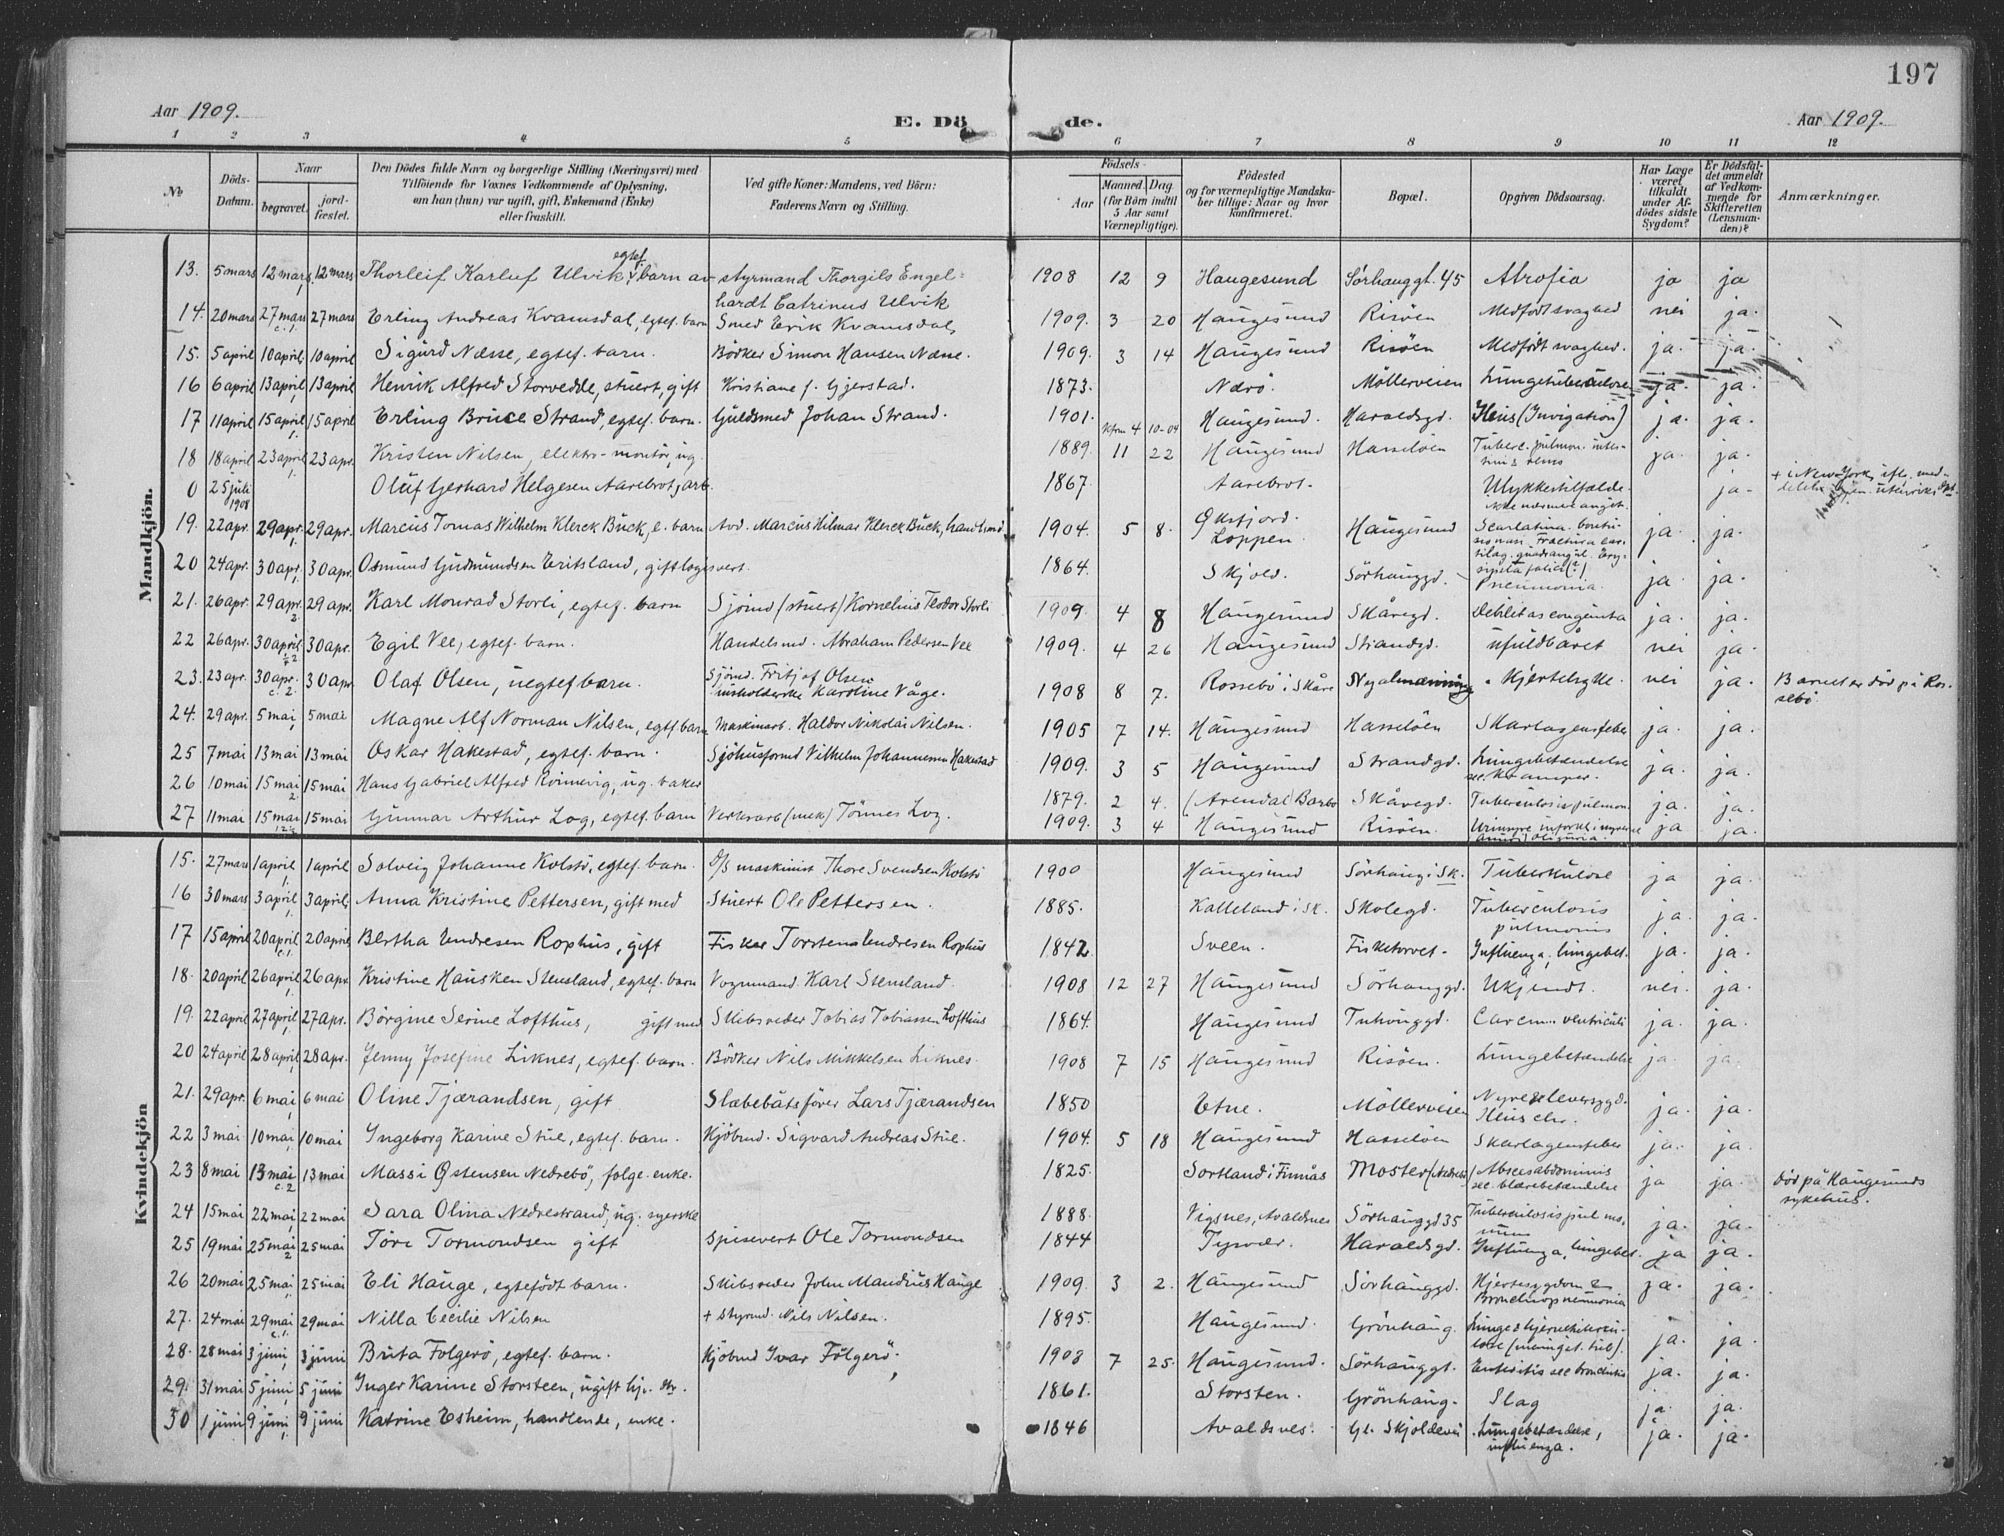 197
Aar 1909.
E. Döde.
Aar 1909.
1 2 3 4 5 6 7 8 9 10 11 12
№ Döds-Datum. Naar begravet. jordfæstet. Den Dödes fulde Navn og borgerlige Stilling (Næringsvei) med Tilföiende for Voxnes Vedkommende af Oplysning, om han (hun) var ugift, gift, Enkemand (Enke) eller fraskilt. Ved gifte Koner: Mandens, ved Börn: Faderens Navn og Stilling. Födsels- Aar Maaned. Dag. (for Börn indtil 5 Aar samt Værnepligtige). Födested og for værnepligtige Mandskaber tillige: Naar og hvor konfirmeret. Bopæl. Opgiven Dödsaarsag. Har Læge været tilkaldt under Afdödes sidste Sygdom? Er Dödsfaldet anmeldt af Vedkommende for Skifteretten (Lensmanden)? Anmærkninger.
Mandkjön.
13. 5 mars 12 mars 12 mars Thorleif Karluf Ulvik, egtef. barn av styrmand Thorgils Engelhardt Catrinus Ulvik 1908 12 9 Haugesund Sörhauggt. 45 Atrofia ja ja
14. 20 mars 27 mars 27 mars Erling Andreas Kvamsdal, egtef. barn Smed Erik Kvamsdal, 1909. 3 20 Haugesund Risöen Medfödt svaghed nei ja.
15. 5 april 10 april 10 april Sigurd Næsse, egtef. barn. Bödker Simon Hansen Næsse. 1909. 3 14 Haugesund Risöen Medfödt svaghed. ja. ja.
16 6 april 13 april 13 april Henrik Alfred Storvedde, stuert, gift Kristiane f. Gjerstad. 1873. Nærö. Möllerveien Lungetuberculose ja. ja.
17 11 april 15 april 15 april Erling Bruce Strand, egtef. barn. Guldsmed Johan Strand. 1901. Haugesund. Haraldsgd. Ileus (Invigation) ja. ja.
18 18 april 23 april 23 apr. Kristen Nilsen, elektro-montör, ug. 1889. Kfrm 4 10-04 11 22 Haugesund Hasseløen Tuberc. pulmon. ja. ja.
0 25 juli 1908 Oluf Gerhard Helgesen Aarebrot, arb. 1867. Aarebrot. Ulykkestilfælde. ja. + i New York
19. 22 apr. 29 apr. 29 apr. Marcus Tomas Wilhelm Klerck Buck, e. barn Avd. Marcus Hilmar Klerck Buck, handlsmd. 1904. 5 8. Øksfjord. Loppen. Haugesund Scarlatina. ja. ja.
20 24 apr. 30 apr. 30 apr. Osmund Gudmundsen Eritsland, gift logisvert. 1864. Skjold. Sörhauggd. Pneumonia. ja. ja.
21. 26 apr. 29 apr. 29 apr. Karl Monrad Storli, egtef. barn Sjömd (stuert) Kornelius Teodor Storli 1909. 4 8 Haugesund Skåregd. Debilitas congenita ja. ja.
22 26 apr. 30 april 30 apr. Egil Vee, egtef. barn. Handelsmd. Abraham Pedersen Vee 1909. 4 26 Haugesund Strandgd. ufuldbåret nei ja.
23. 23 apr. 30 apr. 30 apr. Olaf Olsen, uegtef barn. Sjömd. Fritjof Olsen Karoline Våge. 1908 8 7. Rossebö i Skåre Kjertelsyke. nei ja. Barnet er död på Rossebö.
24. 29 apr. 5 mai 5 mai Magne Alf Norman Nilsen, egtf barn Maskinarb. Haldor Nikolai Nilsen. 1905 7 14. Haugesund Hasselöen Skarlagensfeber ja. ja.
25 7 mai 13 mai 13 mai Oskar Hakestad, egtef. barn. Sjöhusformd Vilhelm Johannessen Hakestad 1909. 3 5 Haugesund Strandgd. Lungebetændelse sec. kramper. ja. ja.
26 10 mai 15 mai 15 mai Hans Gabriel Alfred Kvinevig, ug. baker 1879. 2 4. (Arendal) Barbo Skåregd. Tuberculosis pulmon. ja. ja.
27 11 mai 15 mai 15 mai Gunnar Arthur Log, egtef. barn Verksarb (mek) Tönnes Log. 1909. 3 4 Haugesund Risöen. ja ja.
Kvindekjön
15. 27 mars 1 april 1 april Solveig Johanne Kolstö, egtef. barn. D/S maskinist Thore Svendsen Kolstö 1900 Haugesund Sörhaug i Sk. Tuberkulose ja ja.
16 30 mars 3 april 3 april, Anna Kristine Pettersen, gift med Stuert Ole Pettersen. 1885. Kalleland i Sk. Skolegd. Tuberculosis pulmonis ja. ja.
17 15 april 20 april 20 april Bertha Endresen Rophus, gift Fisker Torstens Endresen Rophus 1842 Sveen. Fisketorvet. Influenza, lungebet. ja. ja.
18. 20 april 26 april 26 apr. Kristine Hausken Stensland, egtef. barn Vognmand Karl Stensland. 1908 12 27 Haugesund Sörhauggd. Ukjendt. nei. ja.
19. 22 april 27 april 27 apr. Börgine Serine Lofthus, gift med Skibsreder Tobias Tobiassen Lofthus 1864. Haugesund Tuhauggd. Carcin. ventriculi ja. ja.
20 24 april 28 april 28 apr. Jenny Josefine Liknes, egtef. barn. Bödker Nils Mikkelsen Liknes. 1908 7 15 Haugesund Risöen. Lungebetændelse ja. ja.
21. 29 apr. 6 mai 6 mai Oline Tjærandsen, gift Slæbebåtsförer Lars Tjærandsen 1850 Etne. Möllerveien Nyre & leversygd. Ileus chr. ja. ja.
22 3 mai 10 mai 10 mai Ingeborg Karine Stue, egtef. barn. Kjöbmd. Sigvard Andreas Stue. 1904. 5 18 Haugesund Hasselöen Skarlagensfeber ja. ja.
23 8 mai 13 mai 13 mai Massi Østensen Nedrebö, folge. enke. 1825. Sortland i Finnås Moster Absces abdominis sec. blærebetændelse ja ja. död på Haugesunds sykehus.
24 15 mai 22 mai 22 mai Sara Olina Nedrestrand, ug. syerske 1888. Vigsnes, Avaldsnes Sörhauggd 35 Tuberculosis pulmonum ja. ja.
25 19 mai 25 mai 25 mai Töre Tormondsen gift Spisevert Ole Tormondsen 1844 Tysvær. Haraldsgd. Influenza, lungebet. ja ja.
26 20 mai 25 mai 25 mai Eli Hauge, egtefödt barn. Skibsreder John Mandius Hauge 1909. 3 2. Haugesund Sörhauggd. Hjertesygdom & Bronchopneumonia ja. ja.
27. 24 mai 29 mai 29 mai Nilla Cecilie Nilsen + Styrmd. Nils Nilsen. 1895. Haugesund. Grönhaug. ja. ja.
28. 28 mai 3 juni 3 juni Brita Folgerö, egtef. barn. Kjöbmd Ivar Folgerö, 1908 7 25. Haugesund. Sörhauggt. Enteritis sec bronchitis ja. ja.
29. 31 mai 5 juni 5 juni Inger Karine Storsteen, ugift 1861. Storsten. Grönhaug. Slag ja. ja.
30 1 juni 9 juni 9 juni Katrine Esheim, handlende, enke. 1846 Avaldsnes. Gl. Skjoldevei Lungebetændelse, influenza. ja. ja.